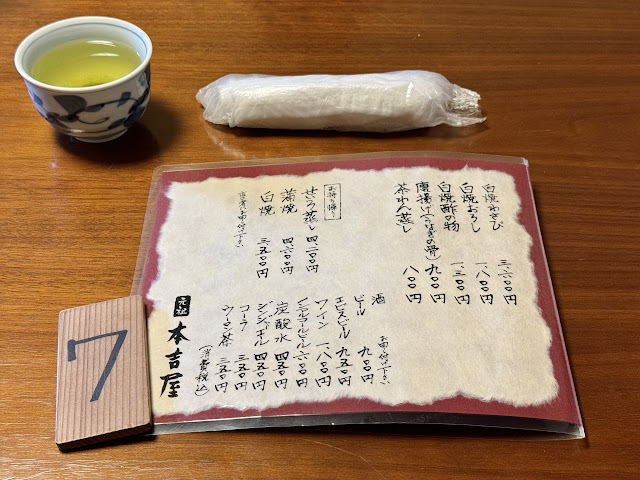 白焼わさび 三、六〇〇円
白焼おろし 一、八〇〇円
白焼酢の物 一、三〇〇円
唐揚げ(うなぎの骨) 九〇〇円
茶わん蒸し 八〇〇円
お持ち帰り
せいろ蒸し 四、二〇〇円
蒲焼 四、六〇〇円
白焼 三、五〇〇円
お申し付け下さい
酒 お申し付け下さい
ビール 九〇〇円
エビスビール 九五〇円
ワイン 一、八〇〇円
ノンアルコールビール 六〇〇円
炭酸水 四五〇円
ジンジャエール 四五〇円
コーラ 三五〇円
ウーロン茶 三五〇円
(消費税込)
元祖 本吉屋
7